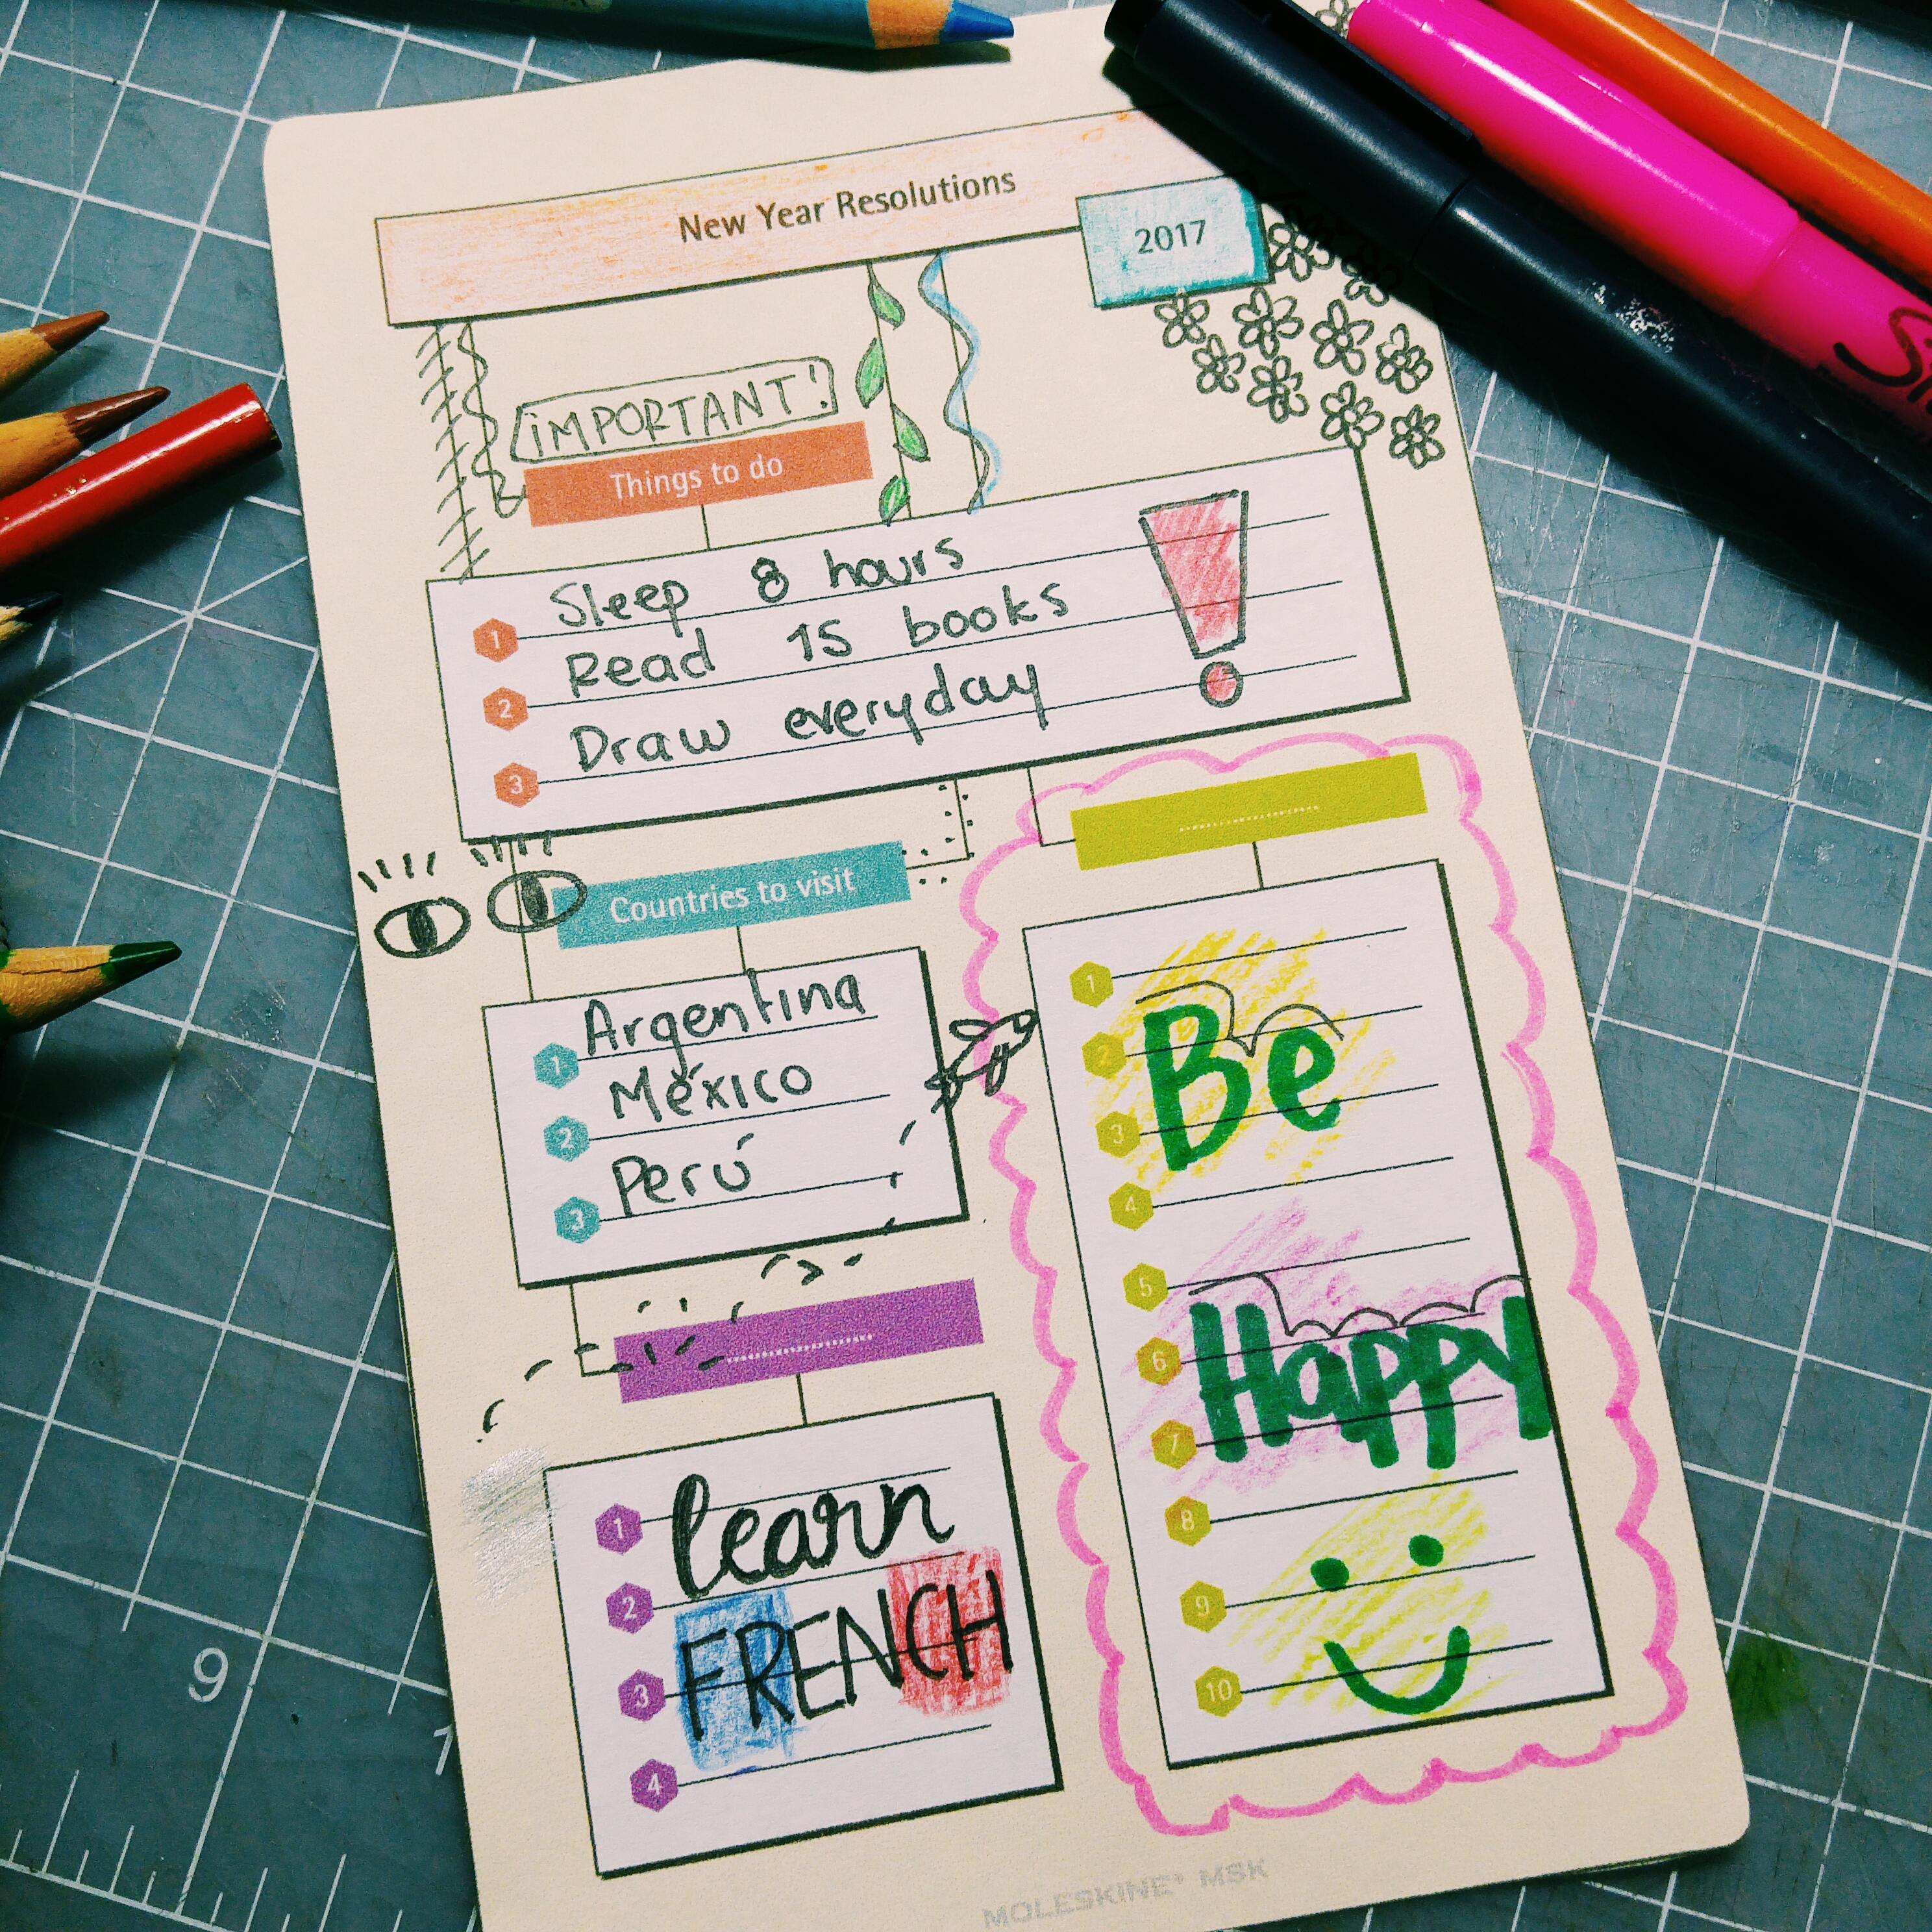 New Year Resolutions
2017
¡IMPORTANT!
Things to do
1 Sleep 8 hours
2 Read 15 books
3 Draw everyday
Countries to visit
1 Argentina
2 México
3 Perú
1 learn
2 FRENCH
3
4
1
2 Be
3
4
5
6 Happy
7
8
9
10
MOLESKINE® MSK
9